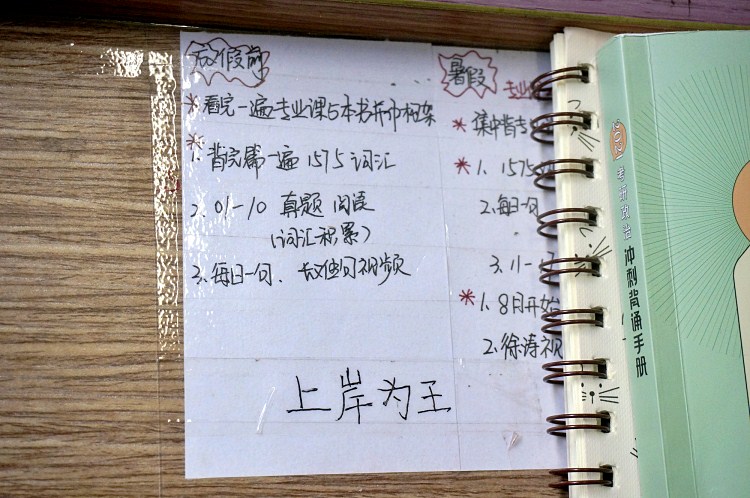 放假前
* 看完一遍专业课5本书并市框架
* 1. 背完第一遍 1575 词汇
2. 01-10 真题 阅读
(词汇积累)
3. 每日一句、长难句视频
上岸为王
暑假
专业
* 集中背专
* 1. 1575
2. 每日一句
3. 11-1
* 1. 8月开始
2. 徐涛视
2021 考研政治 冲刺背诵手册